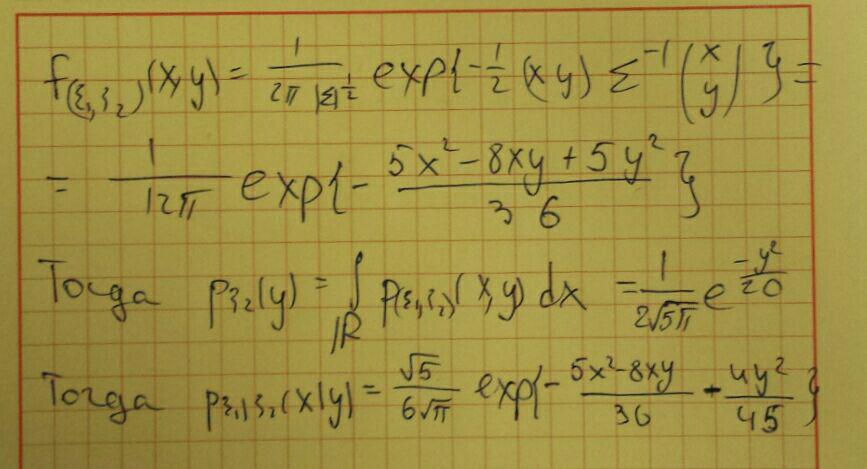 f_{(ξ₁,ξ₂)}(x,y) = \frac{1}{2π |Σ|^{\frac{1}{2}}} exp{-\frac{1}{2} (x y) Σ^{-1} \begin{pmatrix} x \\ y \end{pmatrix} } =
= \frac{1}{12π} exp{- \frac{5x² - 8xy + 5y²}{36} }
Тогда p_{ξ₂}(y) = ∫_{ℝ} p_{(ξ₁,ξ₂)}(x,y) dx = \frac{1}{2\sqrt{5π}} e^{\frac{-y²}{20}}
Тогда p_{ξ₁|ξ₂}(x|y) = \frac{\sqrt{5}}{6\sqrt{π}} exp{- \frac{5x²-8xy}{36} - \frac{4y²}{45} }